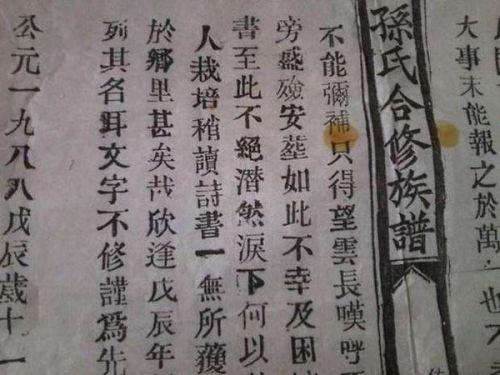 大事末能報之於萬
孫氏合修族譜
不能彌補只得望雲長嘆呼
旁盛殮安塟如此不幸及困
書至此不絕潛然淚下何以
人栽培稍讀詩書一無所獲
於鄉里甚矣哉欣逢戊辰年
列其名耳文字不修謹為先
公元一九八八戊辰歲十一